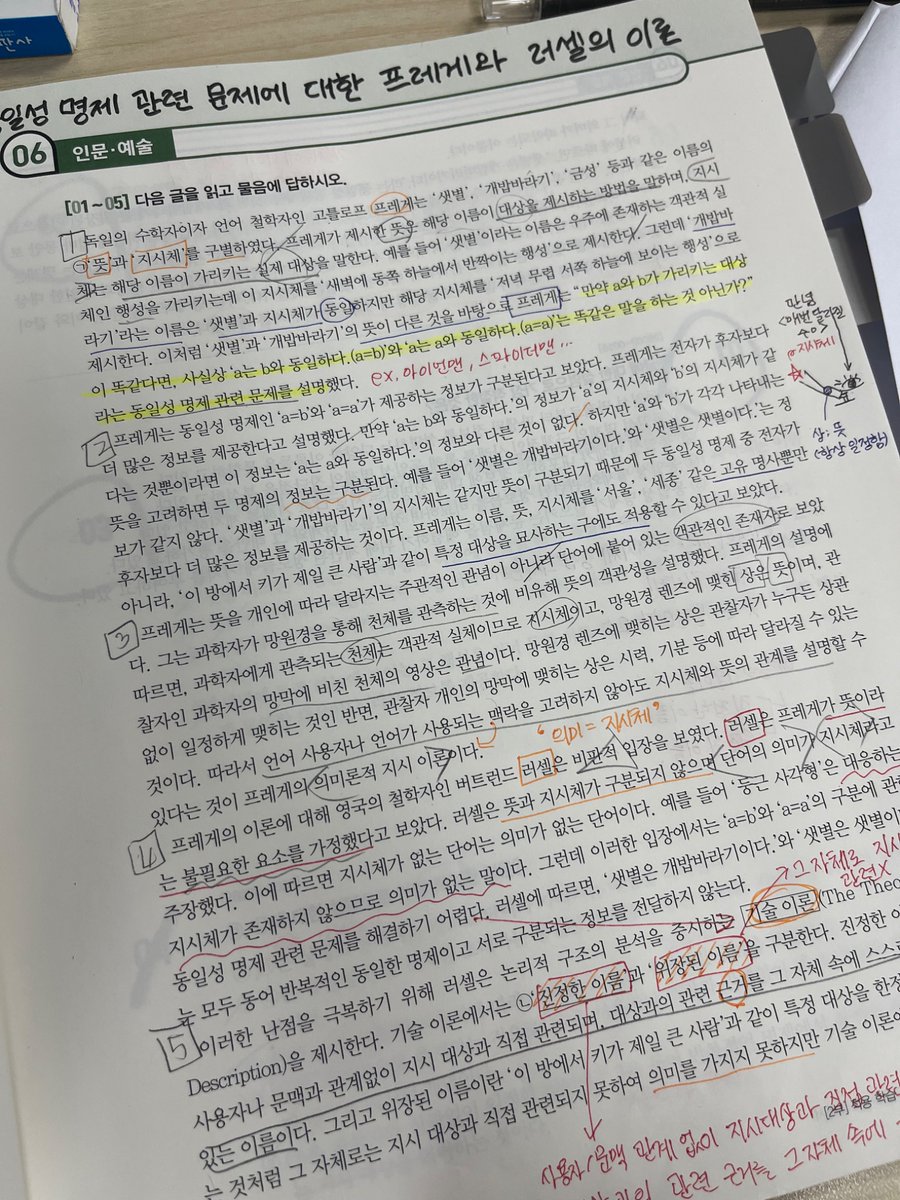 판사
일성 명제 관련 문제에 대한 프레게와 러셀의 이론
06 인문·예술
[01~05] 다음 글을 읽고 물음에 답하시오.
1 독일의 수학자이자 언어 철학자인 고틀로프 프레게는 ‘샛별’, ‘개밥바라기’, ‘금성’ 등과 같은 이름의
㉠‘뜻’과 ‘지시체’를 구별하였다. 프레게가 제시한 뜻은 해당 이름이 대상을 제시하는 방법을 말하며, 지시
체는 해당 이름이 가리키는 실제 대상을 말한다. 예를 들어 ‘샛별’이라는 이름은 우주에 존재하는 객관적 실
체인 행성을 가리키는데 이 지시체를 ‘새벽에 동쪽 하늘에서 반짝이는 행성’으로 제시한다. 그런데 ‘개밥바
라기’라는 이름은 ‘샛별’과 지시체가 동일하지만 해당 지시체를 ‘저녁 무렵 서쪽 하늘에 보이는 행성’으로
제시한다. 이처럼 ‘샛별’과 ‘개밥바라기’의 뜻이 다른 것을 바탕으로 프레게는 “만약 a와 b가 가리키는 대상
이 똑같다면, 사실상 ‘a는 b와 동일하다.(a=b)’와 ‘a는 a와 동일하다.(a=a)’는 똑같은 말을 하는 것 아닌가?”
라는 동일성 명제 관련 문제를 설명했다.
ex, 아이언맨, 스파이더맨...
관념
<매번 달라질
수 o>
지시체
상: 뜻
<항상 일정함>
2 프레게는 동일성 명제인 ‘a=b’와 ‘a=a’가 제공하는 정보가 구분된다고 보았다. 프레게는 전자가 후자보다
더 많은 정보를 제공한다고 설명했다. 만약 ‘a는 b와 동일하다.’의 정보가 ‘a’의 지시체와 ‘b’의 지시체가 같
다는 것뿐이라면 이 정보는 ‘a는 a와 동일하다.’의 정보와 다른 것이 없다. 하지만 ‘a’와 ‘b’가 각각 나타내는
뜻을 고려하면 두 명제의 정보는 구분된다. 예를 들어 ‘샛별은 개밥바라기이다.’와 ‘샛별은 샛별이다.’는 정
보가 같지 않다. ‘샛별’과 ‘개밥바라기’의 지시체는 같지만 뜻이 구분되기 때문에 두 동일성 명제 중 전자가
후자보다 더 많은 정보를 제공하는 것이다. 프레게는 이름, 뜻, 지시체를 ‘서울’, ‘세종’ 같은 고유 명사뿐만
아니라, ‘이 방에서 키가 제일 큰 사람’과 같이 특정 대상을 묘사하는 구에도 적용할 수 있다고 보았다.
3 프레게는 뜻을 개인에 따라 달라지는 주관적인 관념이 아니라 단어에 붙어 있는 객관적인 존재자로 보았
다. 그는 과학자가 망원경을 통해 천체를 관측하는 것에 비유해 뜻의 객관성을 설명했다. 프레게의 설명에
따르면, 과학자에게 관측되는 천체는 객관적 실체이므로 지시체이고, 망원경 렌즈에 맺힌 상은 뜻이며, 관
찰자인 과학자의 망막에 비친 천체의 영상은 관념이다. 망원경 렌즈에 맺히는 상은 관찰자가 누구든 상관
없이 일정하게 맺히는 것인 반면, 관찰자 개인의 망막에 맺히는 상은 시력, 기분 등에 따라 달라질 수 있는
것이다. 따라서 언어 사용자나 언어가 사용되는 맥락을 고려하지 않아도 지시체와 뜻의 관계를 설명할 수
있다는 것이 프레게의 의미론적 지시 이론이다.
“의미=지시체”
4 프레게의 이론에 대해 영국의 철학자인 버트런드 러셀은 비판적 입장을 보였다. 러셀은 프레게가 뜻이라
는 불필요한 요소를 가정했다고 보았다. 러셀은 뜻과 지시체가 구분되지 않으면 단어의 의미가 지시체라고
주장했다. 이에 따르면 지시체가 없는 단어는 의미가 없는 단어이다. 예를 들어 ‘둥근 사각형’은 대응하는
지시체가 존재하지 않으므로 의미가 없는 말이다. 그런데 이러한 입장에서는 ‘a=b’와 ‘a=a’의 구분에 관한
동일성 명제 관련 문제를 해결하기 어렵다. 러셀에 따르면, ‘샛별은 개밥바라기이다.’와 ‘샛별은 샛별이
는 모두 동어 반복적인 동일한 명제이고 서로 구분되는 정보를 전달하지 않는다.
그 자체로 지시
관련X
5 이러한 난점을 극복하기 위해 러셀은 논리적 구조의 분석을 중시하는 기술 이론(The Theo
Description)을 제시한다. 기술 이론에서는 ㉡‘진정한 이름’과 ‘위장된 이름’을 구분한다. 진정한 이
사용자나 문맥과 관계없이 지시 대상과 직접 관련되며, 대상과의 관련 근거를 그 자체 속에 스스로
있는 이름이다. 그리고 위장된 이름이란 ‘이 방에서 키가 제일 큰 사람’과 같이 특정 대상을 한정
는 것처럼 그 자체로는 지시 대상과 직접 관련되지 못하여 의미를 가지지 못하지만 기술 이론에
[2부] 적용 학습
사용자/문맥 관계 없이 지시대상과 직접 관련
관련 근거를 그 자체 속에